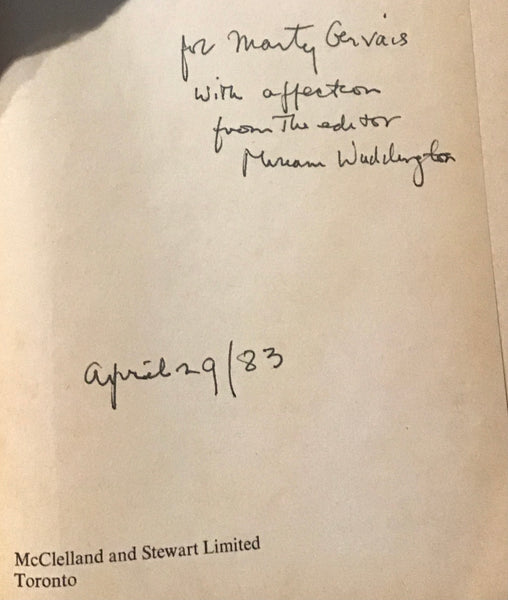 for Marty Gervais
with affection
from The editor
Miriam Waddington
April 29/83
McClelland and Stewart Limited
Toronto